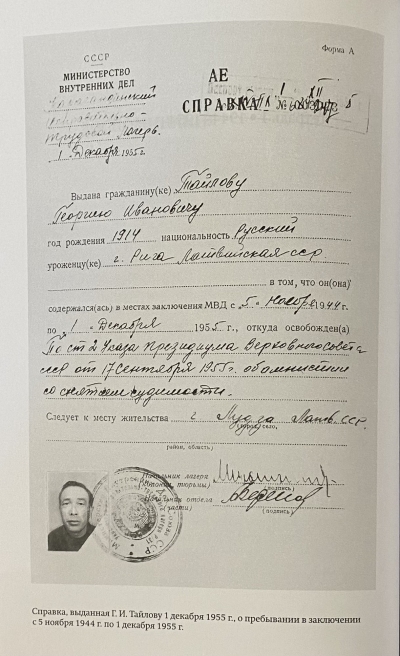 СССР
МИНИСТЕРСТВО
ВНУТРЕННИХ ДЕЛ
трудовой лагерь
1 Декабря 1955 г.
Форма А
АЕ
СПРАВКА №
Выдана гражданину(ке) Тайлову
Георгию Ивановичу
год рождения 1914 национальность Русский
уроженцу(ке) г. Рига Латвийская ССР
в том, что он(она)
содержался(ась) в местах заключения МВД с „5“ Ноября 1944 г.
по „1“ Декабря 1955 г., откуда освобожден(а)
По ст 2 Указа Президиума Верховного совета
ссср от 17 Сентября 1955 г. об амнистии
со снятием судимости.
Следует к месту жительства г Лудза Латв. ССР.
(город, село,
район, область)
Начальник лагеря
(подпись)
Начальник отдела
(части)
(подпись)
Справка, выданная Г. И. Тайлову 1 декабря 1955 г., о пребывании в заключении
с 5 ноября 1944 г. по 1 декабря 1955 г.